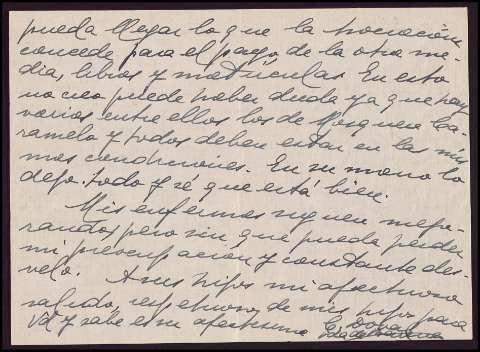 pueda llegar lo que la asociación
concede para el pago de la otra me-
dia, libros y matrículas. En esto
no creo puede haber duda ya que hay
varios entre ellos los de Mosquera Ca-
ramelo y todos deben estar en las mis
mas condiciones. En su mano lo
dejo todo y sé que está bien.
Mis enfermos siguen mejo-
rando, pero sin que pueda perder
mi preocupación y constante des-
velo. A sus hijos mi afectuoso
saludo, respetuoso de mis hijos para
Vd y sabe es su afectísima